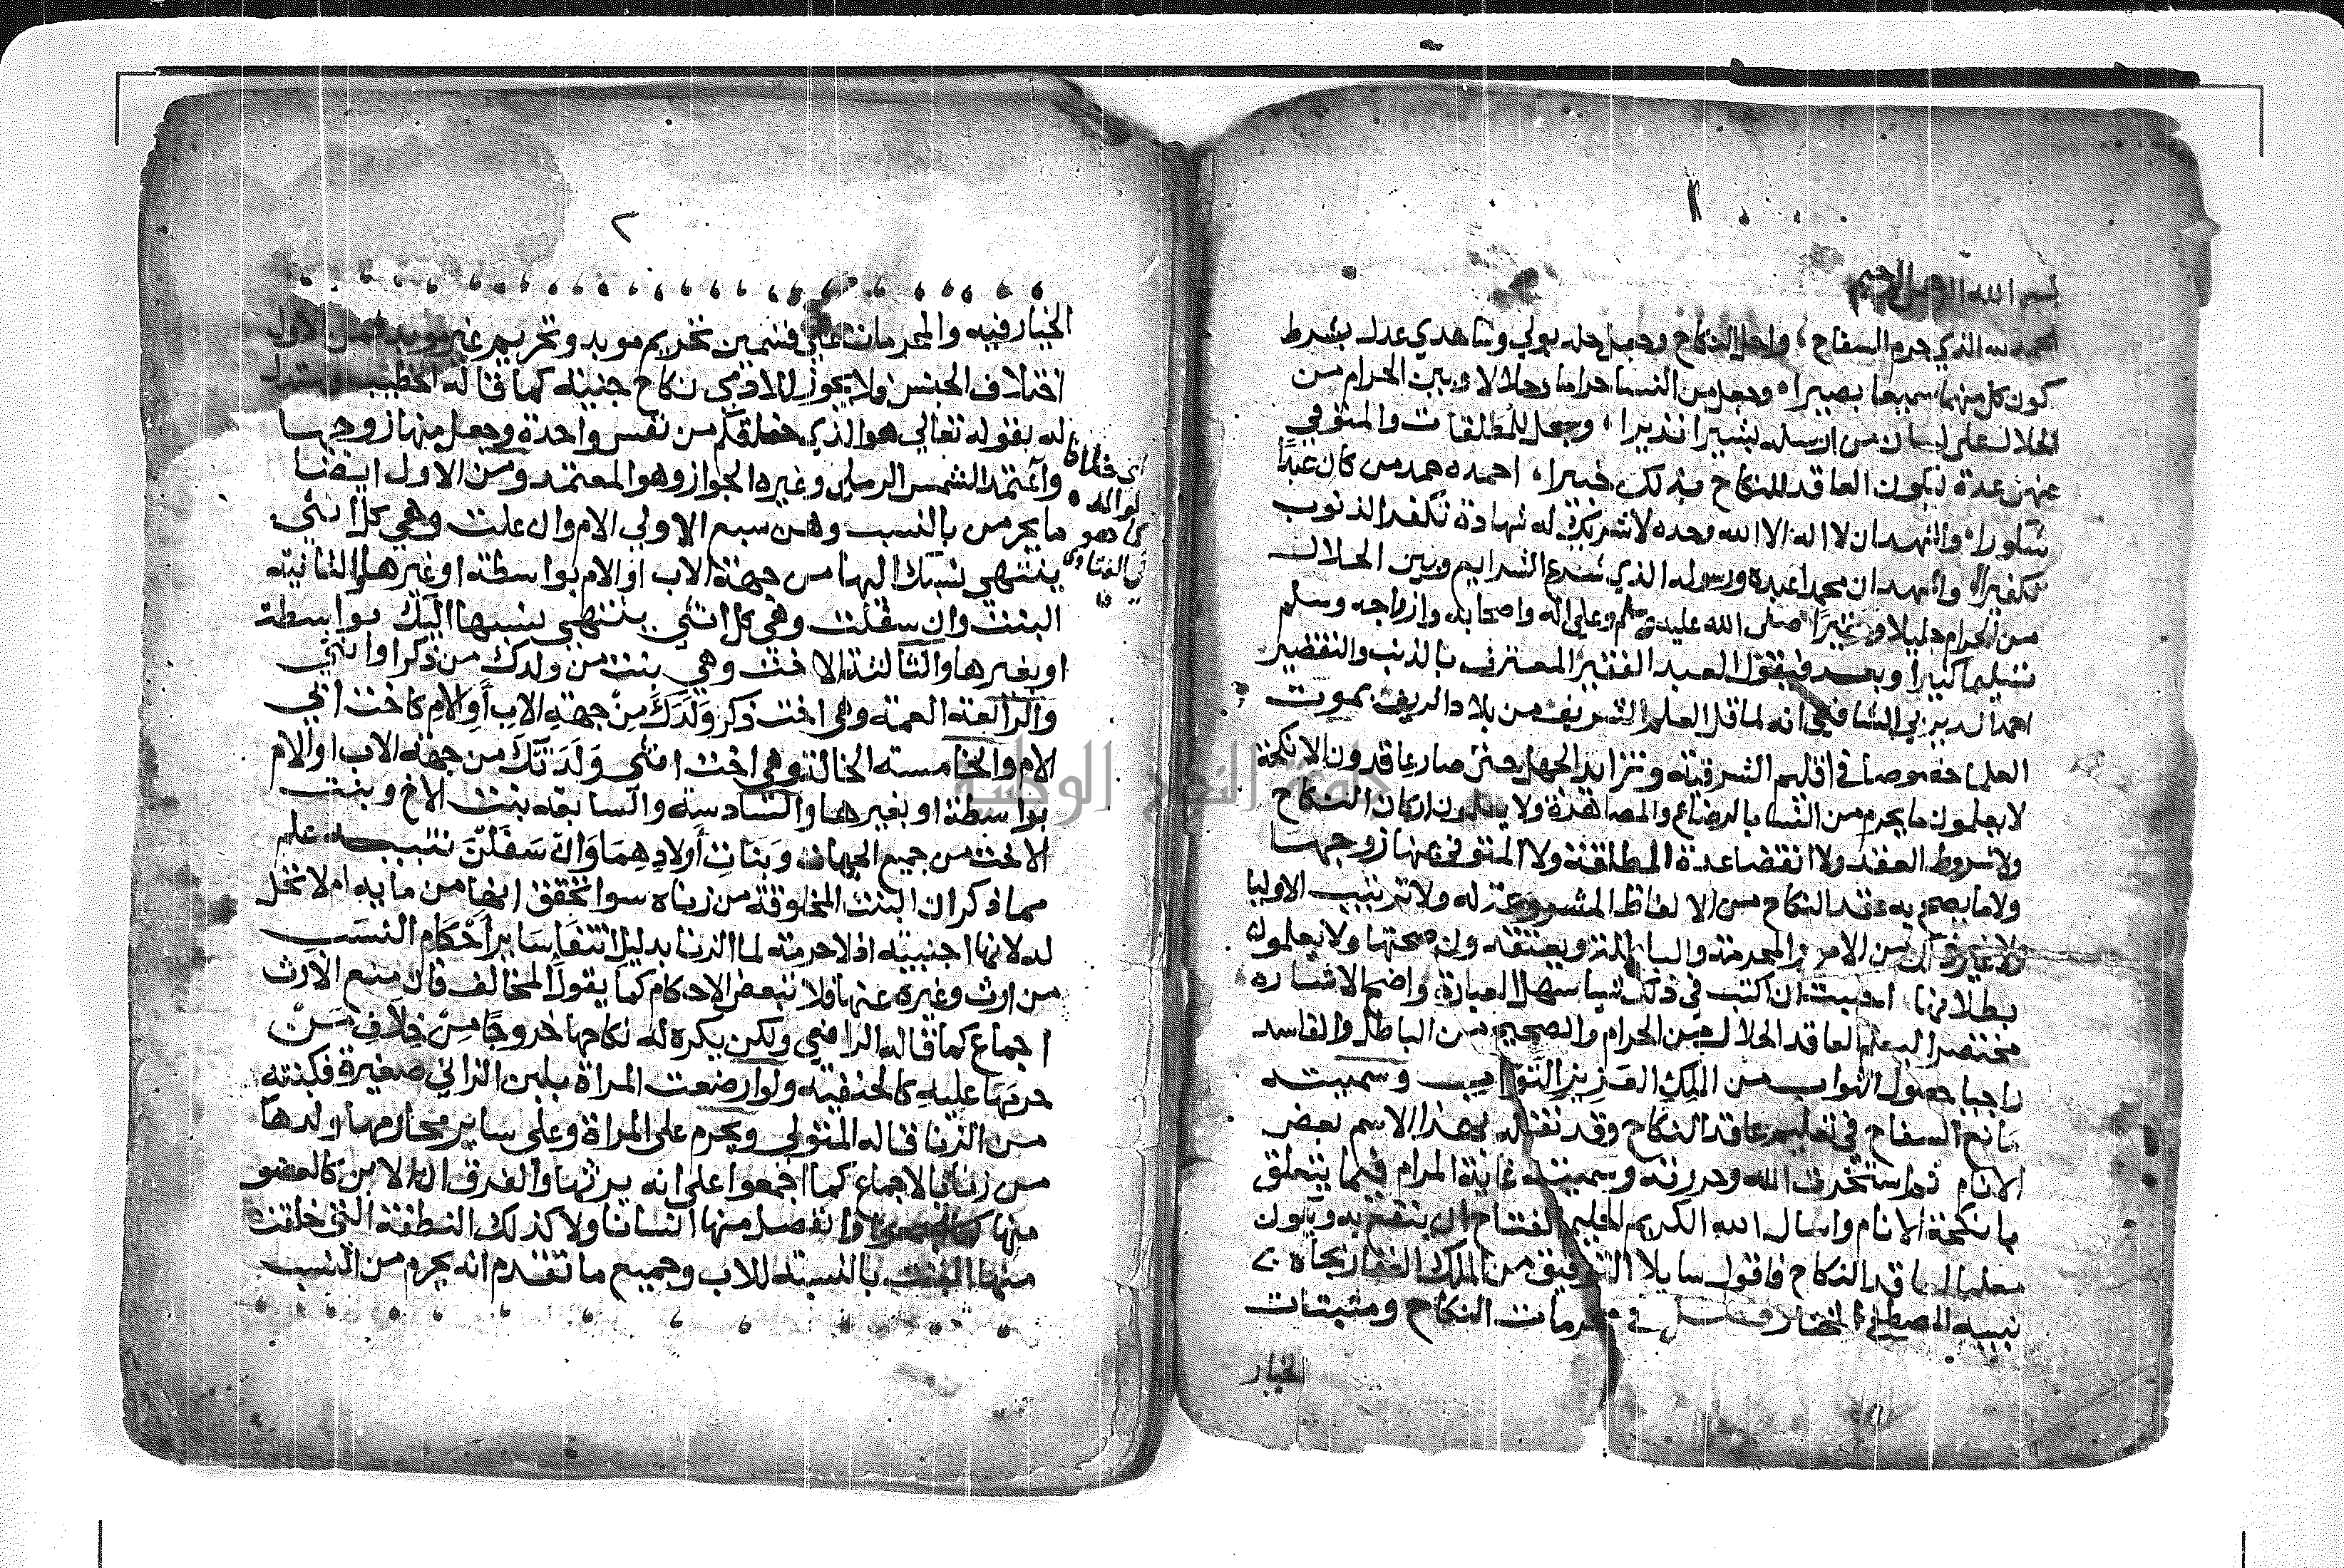 ١
بسم الله الرحمن الرحيم
الحمد لله الذي حرم السفاح واحل النكاح وجعل حله بولي وشاهدي عدل بشرط
كون كل منهما سميعا بصيرا وجعل من النسا حراما وحلالا وبين الحرام من
الحلال على لسان من ارسله بشيرا نذيرا وجعل للمطلقات والمتوفي
عنهن عدة ليكون العاقد للنكاح بذلك خبيرا احمده حمد من كان عبدا
شكورا واشهد ان لا اله الا الله وحده لا شريك له شهادة تكفر الذنوب
تكفيرا واشهد ان محمدا عبده ورسوله الذي شرع الشرايع وبين الحلال
من الحرام صلى الله عليه وسلم وعلى اله واصحابه وازواجه وسلم
تسليما كثيرا وبعد فيقول العبد الفقير المعترف بالذنب والتقصير
احمد الشافعي انه لما قل العلم الشريف من بلاد الريف بموت
العلما خصوصا في اقليم الشرقية وتزايد الجهل حتى صار عاقدون الانكحة
لا يعلمون ما يحرم من النسا بالرضاع والمصاهرة ولا يعلمون اركان النكاح
ولا شروط العقد ولا انقضا عدة المطلقة ولا المتوفى عنها زوجها
ولا ما يصح به عقد النكاح من الالفاظ المشروعة له ولا ترتيب الاوليا
ولا غير ذلك من الامور المحرمة ويعتقدون صحتها ولا يعلمون
بطلانها احببت ان اكتب في ذلك شيا سهل العبارة واضح الاشاره
مختصرا ليعلم العاقد الحلال من الحرام والصحيح من الباطل والفاسد
راجيا حصول الثواب من الملك العزيز التواب وسميته
مانع السفاح في تعليم عاقد النكاح وقد بهذا الاسم بعض
الانام ثم استخرت الله وحررته وسميته غاية المرام فيما يتعلق
بانكحة الانام واسال الله الكريم الفتاح ان ينتفع به ويكون
معلما لعاقد النكاح فاقول سايلا التوفيق من الملك الغفار بجاه
نبيه المصطفى المختار فصل في محرمات النكاح ومثبتات
الخيار
٢
الخيار فيه والمحرمات على قسمين تحريم موبد وتحريم غير موبد فمن الاول
اختلاف الجنس ولا يجوز للادمي نكاح جنية كما قاله الخطيب
له بقوله تعالى هو الذي خلقكم من نفس واحدة وجعل منها زوجها
واعتمد الشمس الرملي وغيره الجواز وهو المعتمد ومن الاول ايضا
ما يحرمن بالنسب وهن سبع الاولى الام وان علت وهي كل انثى
ينتهي نسبك اليها من جهة الاب او الام بواسطة او غيرها والثانية
البنت وان سفلت وهي كل انثى ينتهي نسبها اليك بواسطة
او بغيرها والثالثة الاخت وهي بنت من ولدك من ذكر او انثى
والرابعة العمة وهي اخت ذكر ولدك من جهة الاب او الام كاخت ابي
الام والخامسة الخالة وهي اخت انثى ولدتك من جهة الاب او الام
بواسطة او بغيرها والسادسة والسابعة بنت الاخ وبنت
الاخت من جميع الجهات وبنات اولادهما وان سفلن تنبيه علم
مما ذكر ان البنت المخلوقة من زناه سوا تحقق انها من مايه ام لا تحل
له لانها اجنبية اذ لا حرمة لما الزنا بدليل انتفا ساير احكام النسب
من ارث وغيره عنها فلا تبعض الاحكام كما يقول المخالف فان منع الارث
اجماع كما قاله الرافعي ولكن يكره له نكاحها خروجا من خلاف من
حرمها عليه كالحنفية ولو ارضعت المراة بلبن الزاني صغيرة فكبنته
من الزنا قاله المتولي ويحرم على المراة وعلى ساير محارمها ولدها
من زنا بالاجماع كما اجمعوا على انه يرثها والفرق ان الابن كالعضو
منها وانفصل منها انسانا ولا كذلك النطفة التي خلقت
منها البنت بالنسبة للاب وجميع ما تقدم انه يحرم من النسب